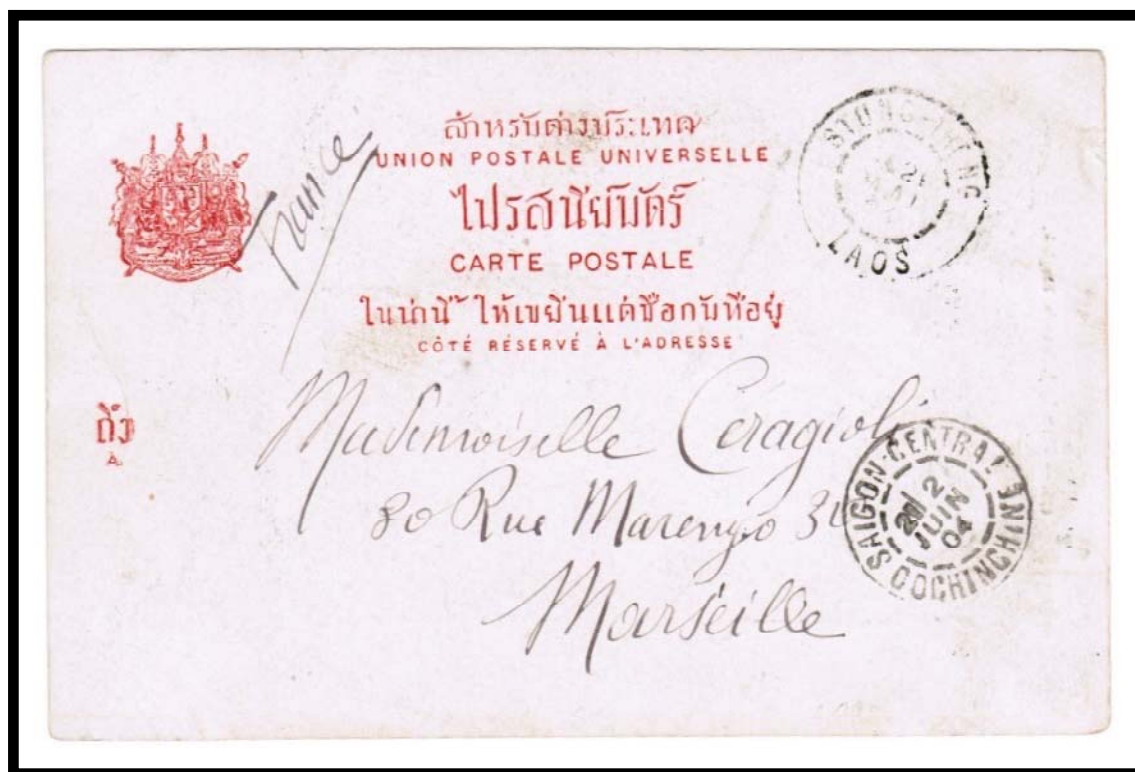 สำหรับต่างประเทศ
UNION POSTALE UNIVERSELLE
ไปรสนียบัตร์
CARTE POSTALE
ในน่านี้ ให้เขยีนแต่ชื่อกับที่อยู่
CÔTÉ RÉSERVÉ À L'ADRESSE
France
ถึง
A
STUNG-TRENG
LAOS
Mademoiselle Ceragioli
80 Rue Marengo
Marseille
SAIGON-CENTRAL
2
JUIN
04
COCHINCHINE